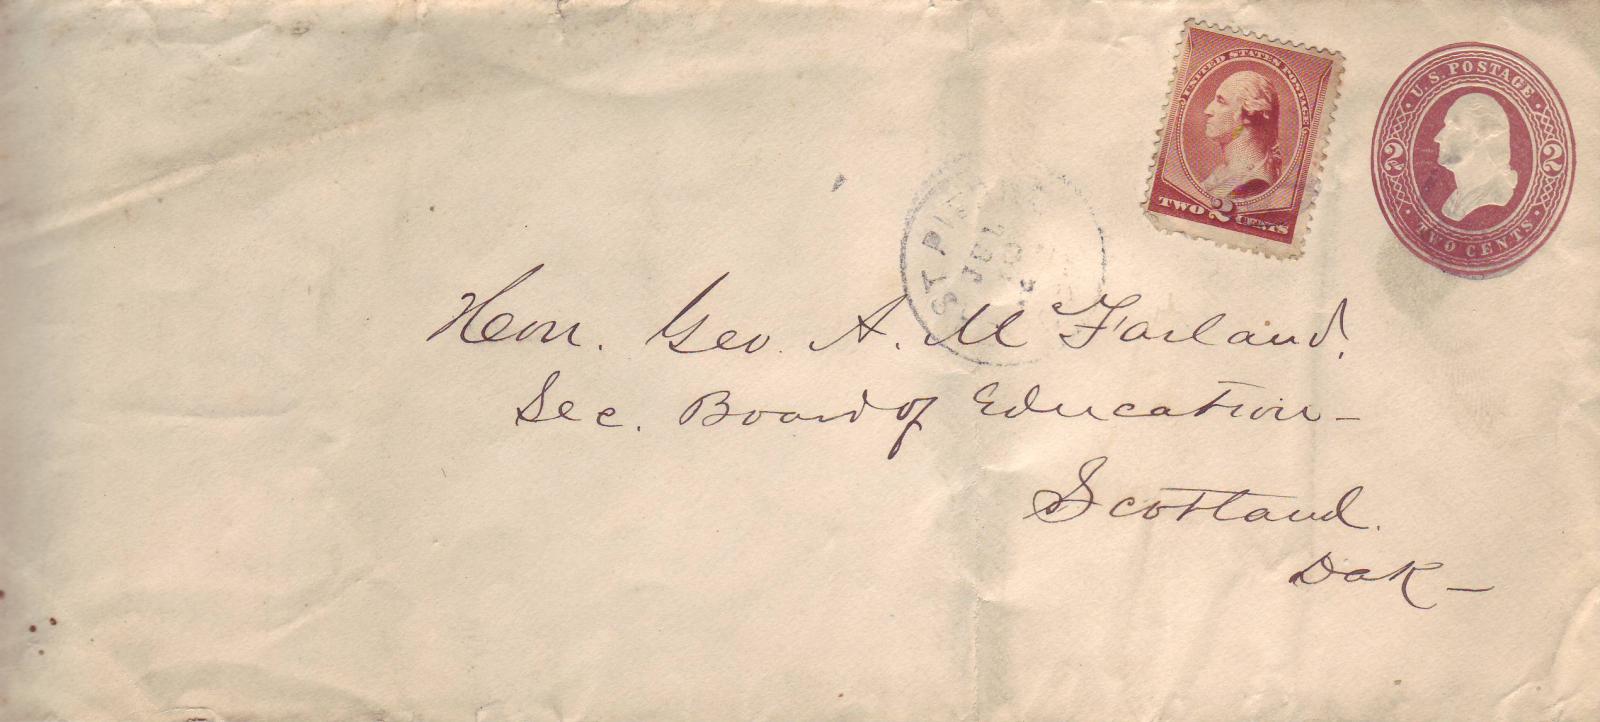 UNITED STATES POSTAGE
TWO 2 CENTS
U.S. POSTAGE
2 2
TWO CENTS
ST P
JUL
Hon. Geo. A. McFarland.
Sec. Board of Education -
Scotland.
Dak -